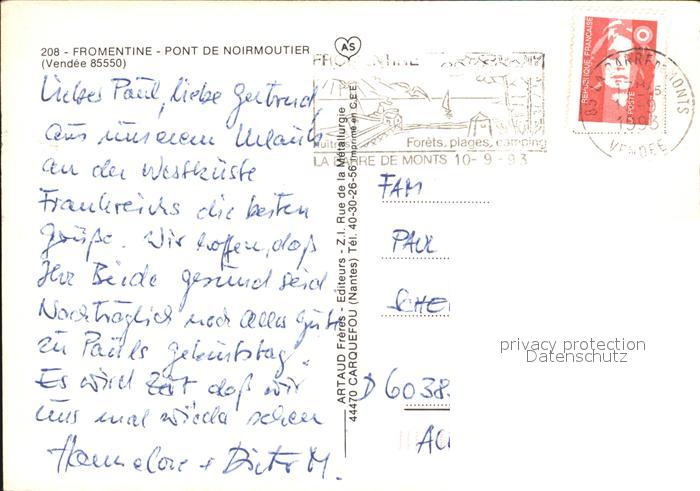 208 - FROMENTINE - PONT DE NOIRMOUTIER
(Vendée 85550)
AS
Liebes Paul, liebe Gertrud,
aus unserem Urlaub
an der Westküste
Frankreichs die besten
Grüße. Wir hoffen, daß
Ihr Beide gesund seid.
Nachträglich noch alles Gute
zu Pauls Geburtstag.
Es wird Zeit daß wir
uns mal wieder sehen
Hannelore + Dieter M.
ARTAUD Frères - Editeurs - Z.I. Rue de la Métallurgie
44470 CARQUEFOU (Nantes) Tél. 40-30-26-56 Imprimé en C.E.E.
FROMENTINE
Forêts, plages, camping
LA BARRE DE MONTS 10-9-93
REPUBLIQUE FRANÇAISE
POSTE
1993
VENDEE
FAM
PAUL
SCHE
D 6038
privacy protection
Datenschutz